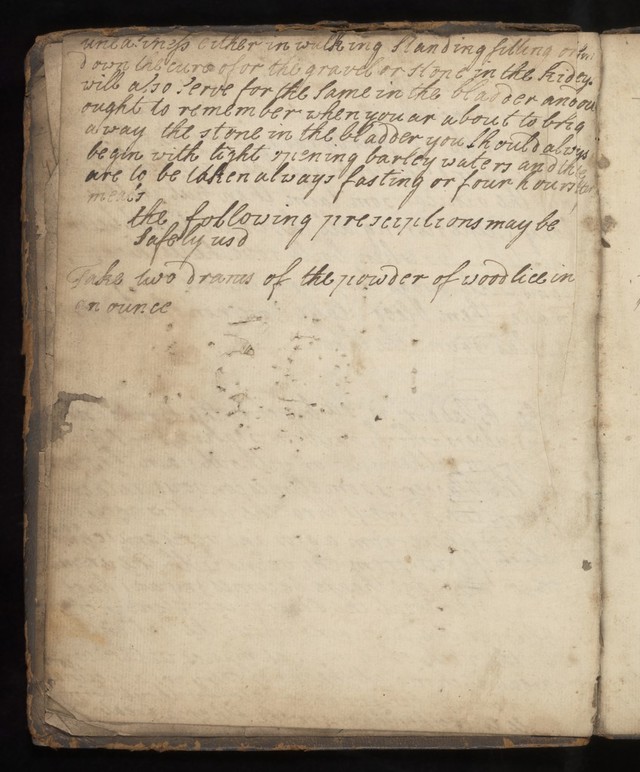 uneasiness either in walking standing sitting or
down the cure of or the gravel or stone in the kidey
will also serve for the same in the bladder and
ought to remember when you ar about to brig
away the stone in the bladder you should
begin with light opening barley waters and
are to be taken always fasting or four hours
meals
the following presciptions may be
safely usd
Take two drams of the powder of woodlice in
an ounce